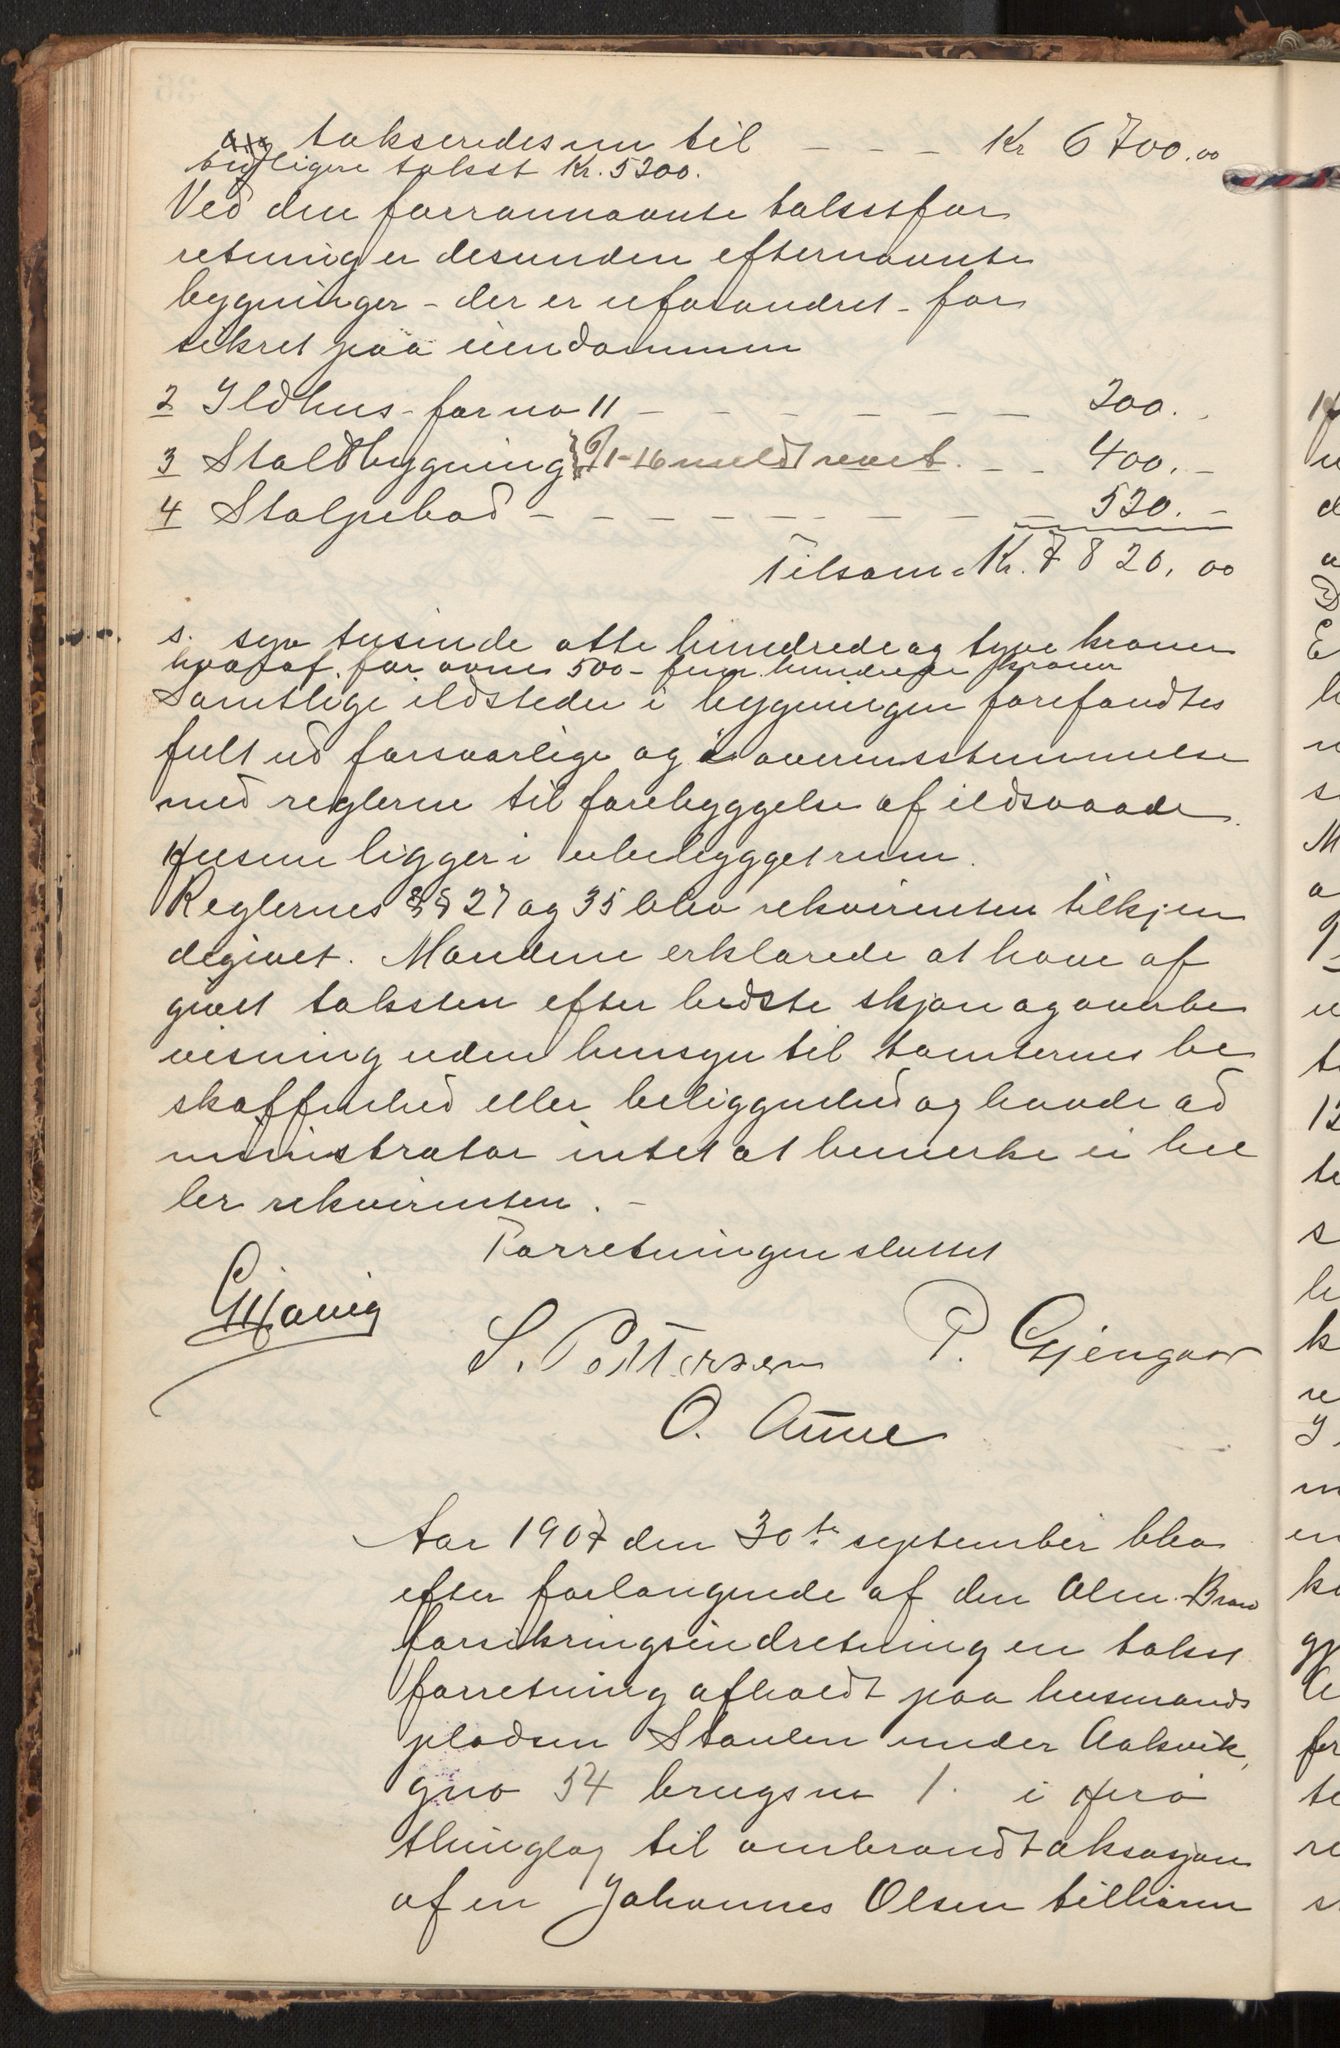 og takseredes nu til - - - Kr 6700.00
tidligere takst Kr. 5200.
Ved den forrannævnte takstfor
retning er desunden efternævnte
bygninger - der er uforandret - for
sikret paa eiendommen
2 Ildhus - før no 11 - - - - - - - 200. -
3 Staldbygning - - 400. -
4 Stolpebod - - - - - - - - - 520. -
Tilsam. Kr. 7820,00
s. syv tusinde otte hundrede og tyve kroner
hvoraf for ovne 500 - fem hundrede kroner
Samtlige ildsteder i bygningen forefandtes
fult ud forsvarlige og i overensstemmelse
med reglerne til forebyggelse af ildsvaade.
Husene ligger i ubebygget rum.
Reglernes §§ 27 og 35 blev rekvirenten tilkjen
degivet. Mændene erklærede at have af
givet taksten efter bedste skjøn og overbe
visning uden hensyn til tomternes be
skaffenhed eller beliggenhed og havde ad
ministrator intet at bemerke ei hel
ler rekvirenten. -
Forretningen sluttet
S. Pettersen P. Gjengaar
O. Aune
Aar 1907 den 30te september blev
efter forlangende af den Alm. Bran
forsikringsindretning en takst
forretning afholdt paa husmands
pladsen Staulen under Aakvik,
gno 54 brugsno 1. i Herø
thinglag til ombrandtaksasjon
af en Johannes Olsen tilhøren